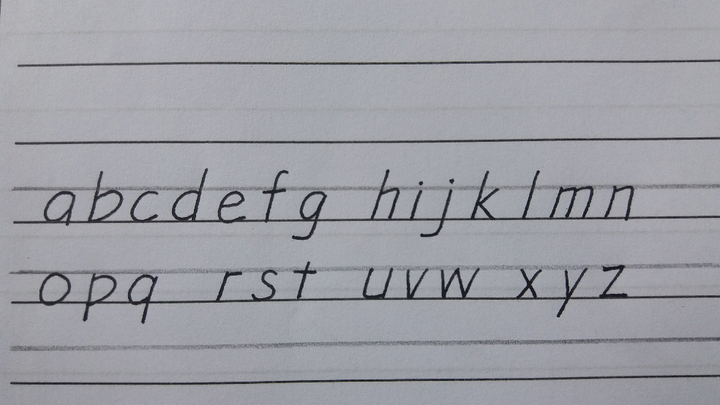 abcdefg hijklmn
opq rst uvw xyz